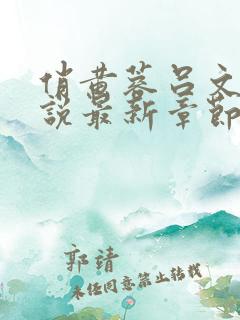 俏黄蓉吕文
说最新章节
郭靖
未经同意禁止转载